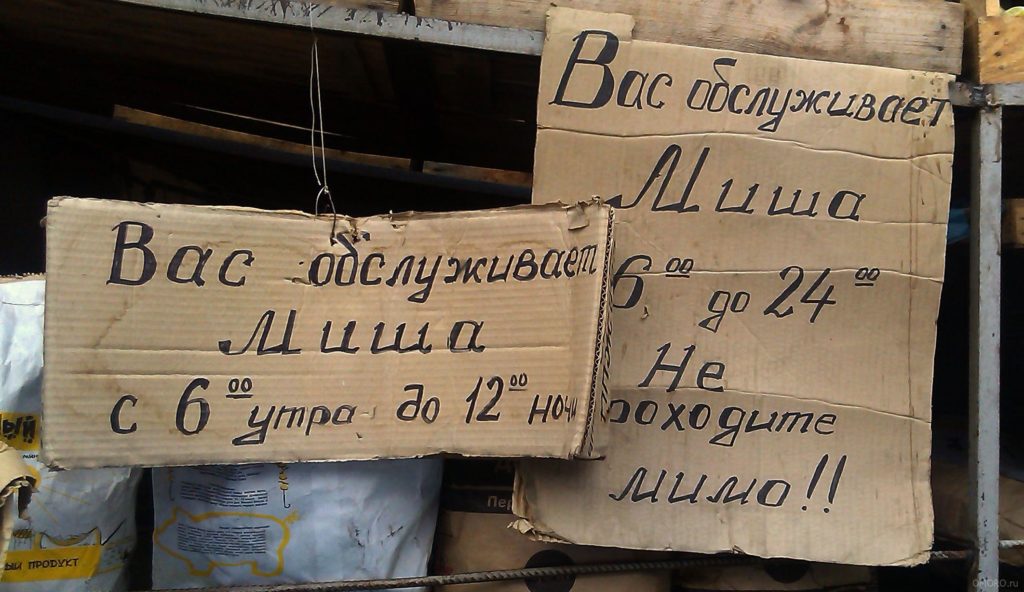 Вас обслуживает
Миша
с 6 00 утра до 12 00 ночи
Вас обслуживает
Миша
6 00 до 24 00
Не
роходите
мимо!!
ый
ЫЙ ПРОДУКТ
Пе
OMORO.ru